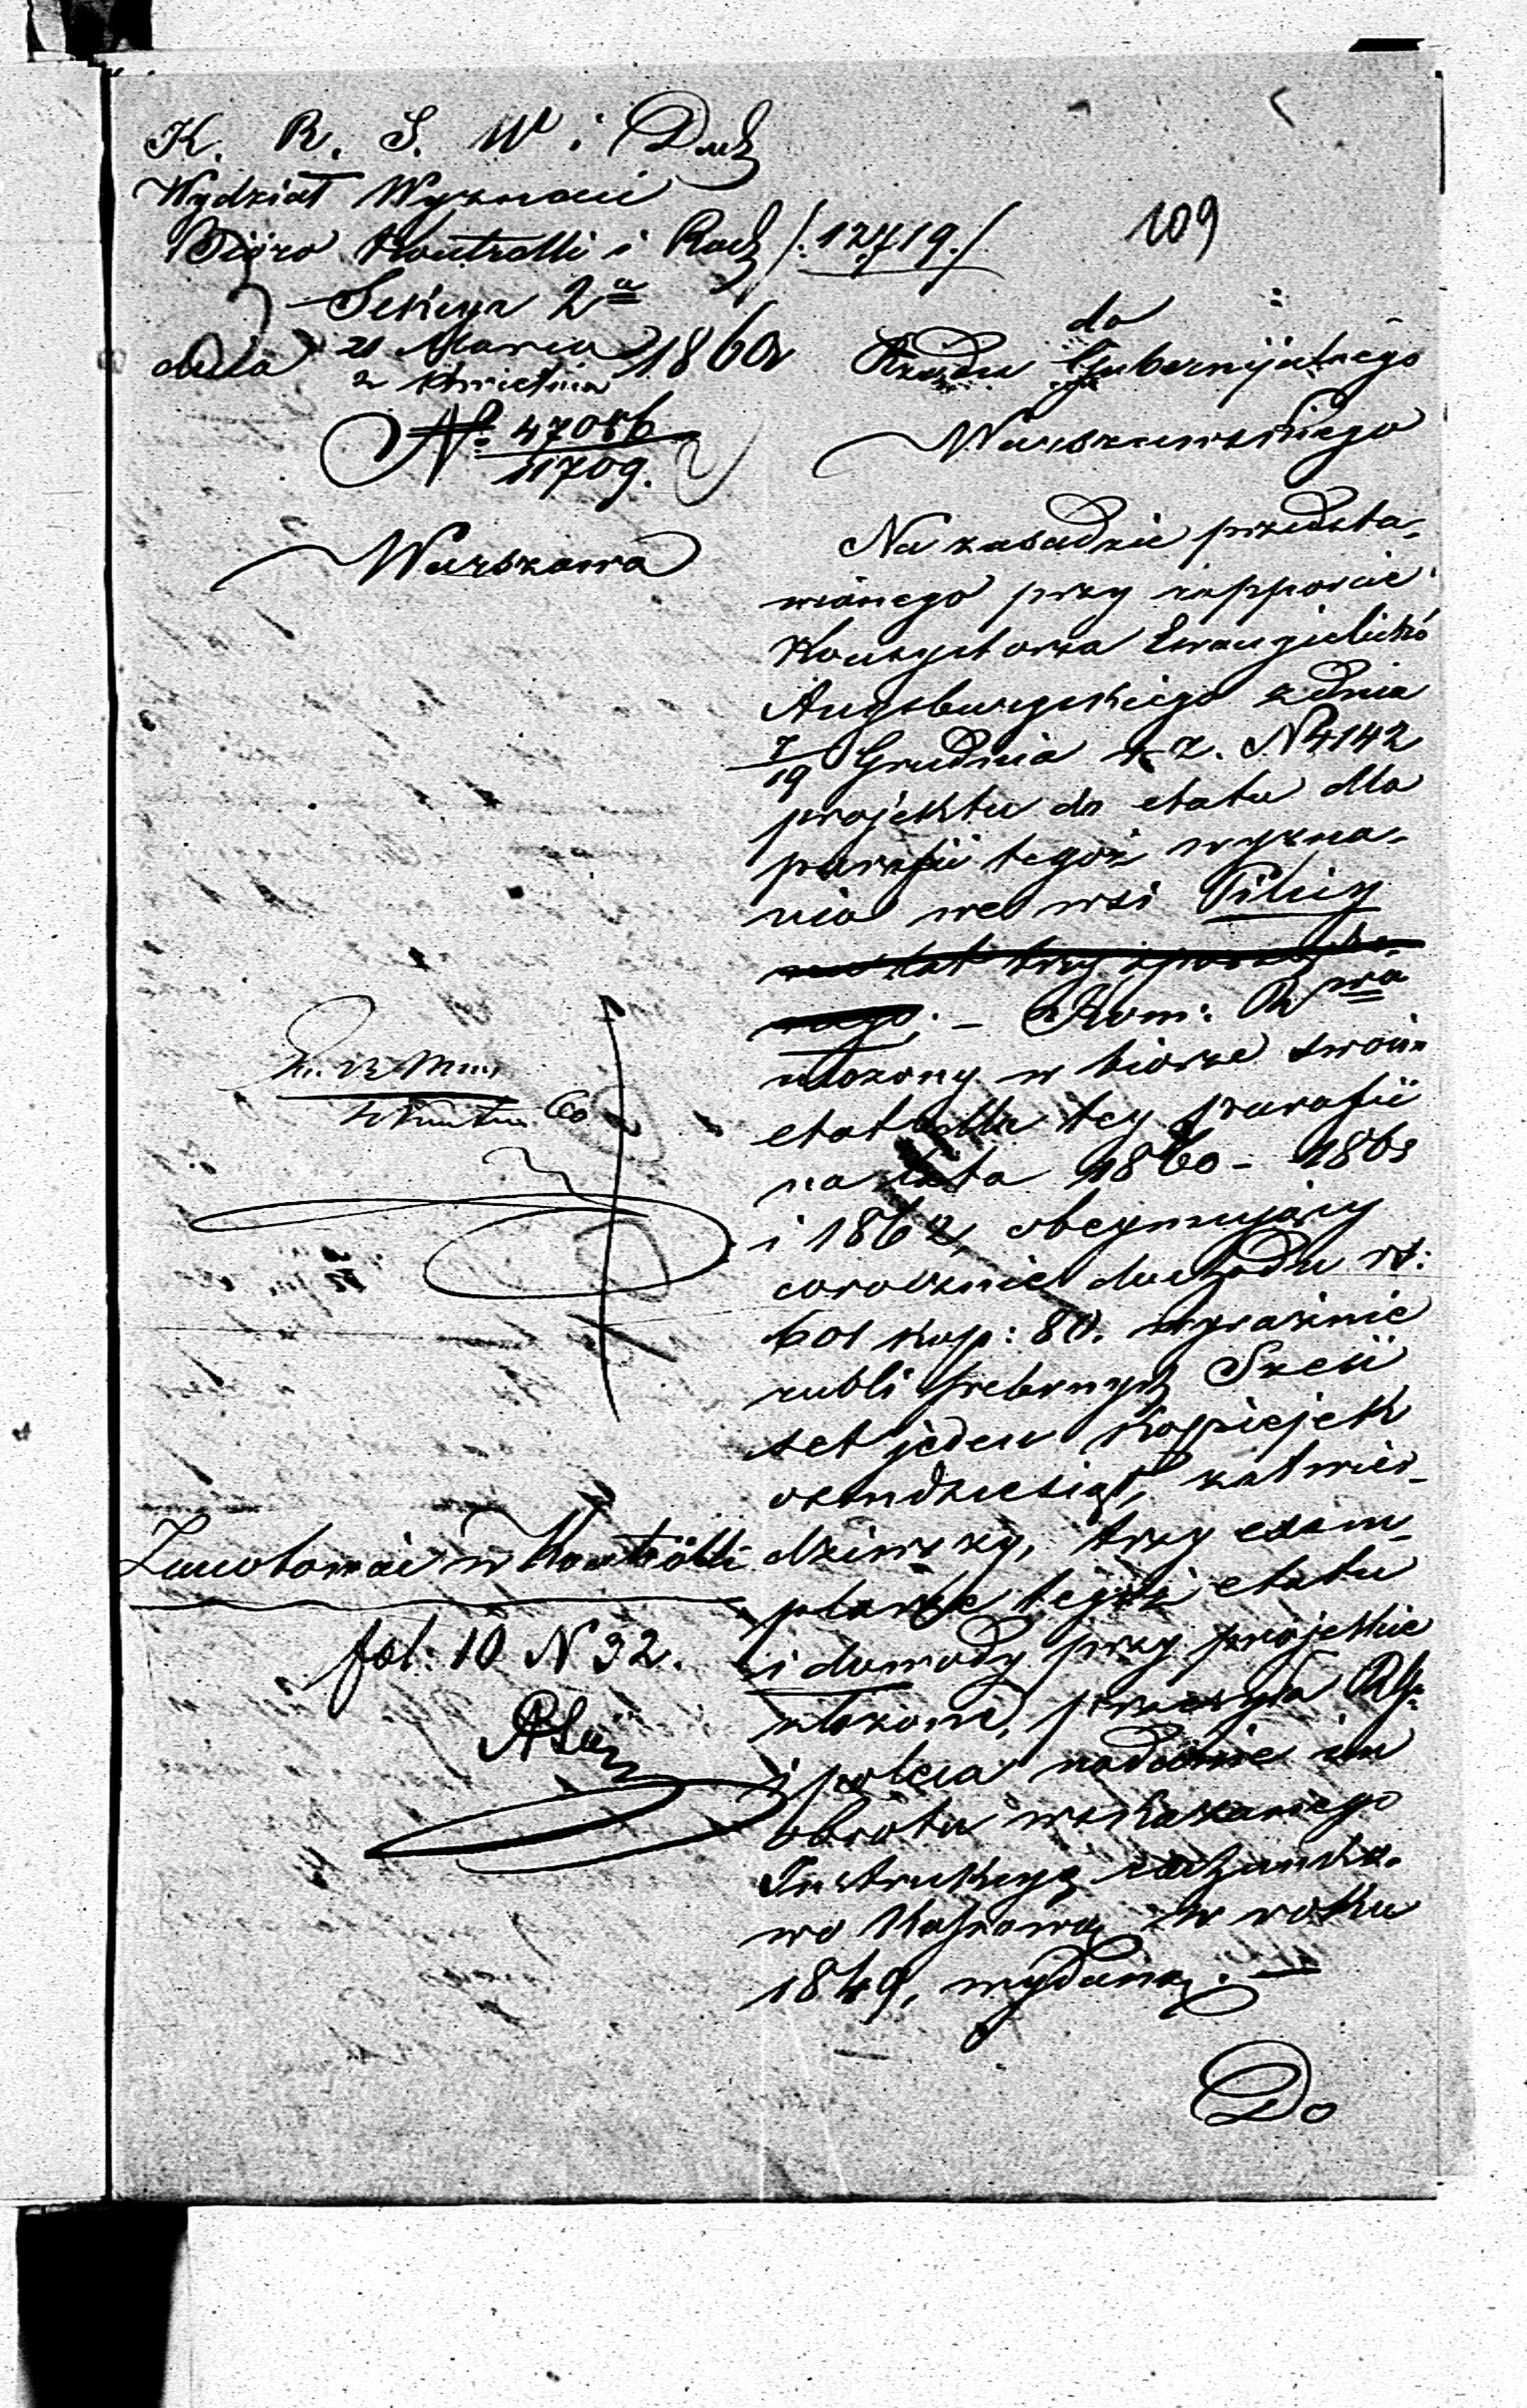 K. R. S. W. i Duch
Wydział Wyznań
Bióro Kontrolli i Rach /:12719:/
109
Sekcya 2a
dnia 21 Marca 1860
2 Kwietnia
No 47056
11709.
Warszawa
do
Rządu Gubernijalnego
Warszawskiego
Na zasadzie przedsta-
wionego przy rapporcie
Konsystorza Ewangielicko
Augsburgskiego z dnia
7/19 Grudnia r. z. N 4142
projektu do etatu dla
parafii tegoż wyzna-
nia we wsi Pilicy
na lat trzy
Kom: Rwa
ułożony w biorze swoim
etat dla tey parafii
na lata 1860 - 1861
i 1862, obeymujący
corocznie dochodu rs:
601 kop: 80. wyraźnie
rubli srebrnych Sześć
set jeden kopiejek
ośmdziesiąt, zatwier-
dziwszy, trzy exem-
plarze tegoż etatu
i dowody przy projekcie
złożone, przesyła
i poleca nadanie im
obrotu wskazanego
Instrukcyą rachunko-
wo Kassową w roku
1849, wydaną. —
Do
Zanotowano w Kontrolli
fol: 10 N 32.